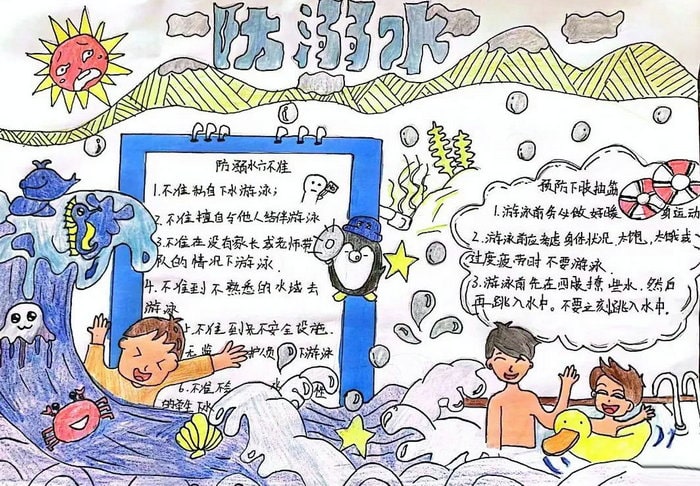 防溺水
防溺水六不准
1.不准私自下水游泳;
2.不准擅自与他人结伴游泳
3.不准在没有家长或老师带
队的情况下游泳.
4.不准到不熟悉的水域去
游泳
不准到无安全设施.
无 游泳
6.不准不会 水 性
的学生下水
预防下肢抽筋
1.游泳前务必做好暖身运动
2.游泳前应考虑身体状况,太饱、太饿或
过度疲劳时不要游泳.
3.游泳前先在四肢撩些水,然后
再跳入水中.不要立刻跳入水中.